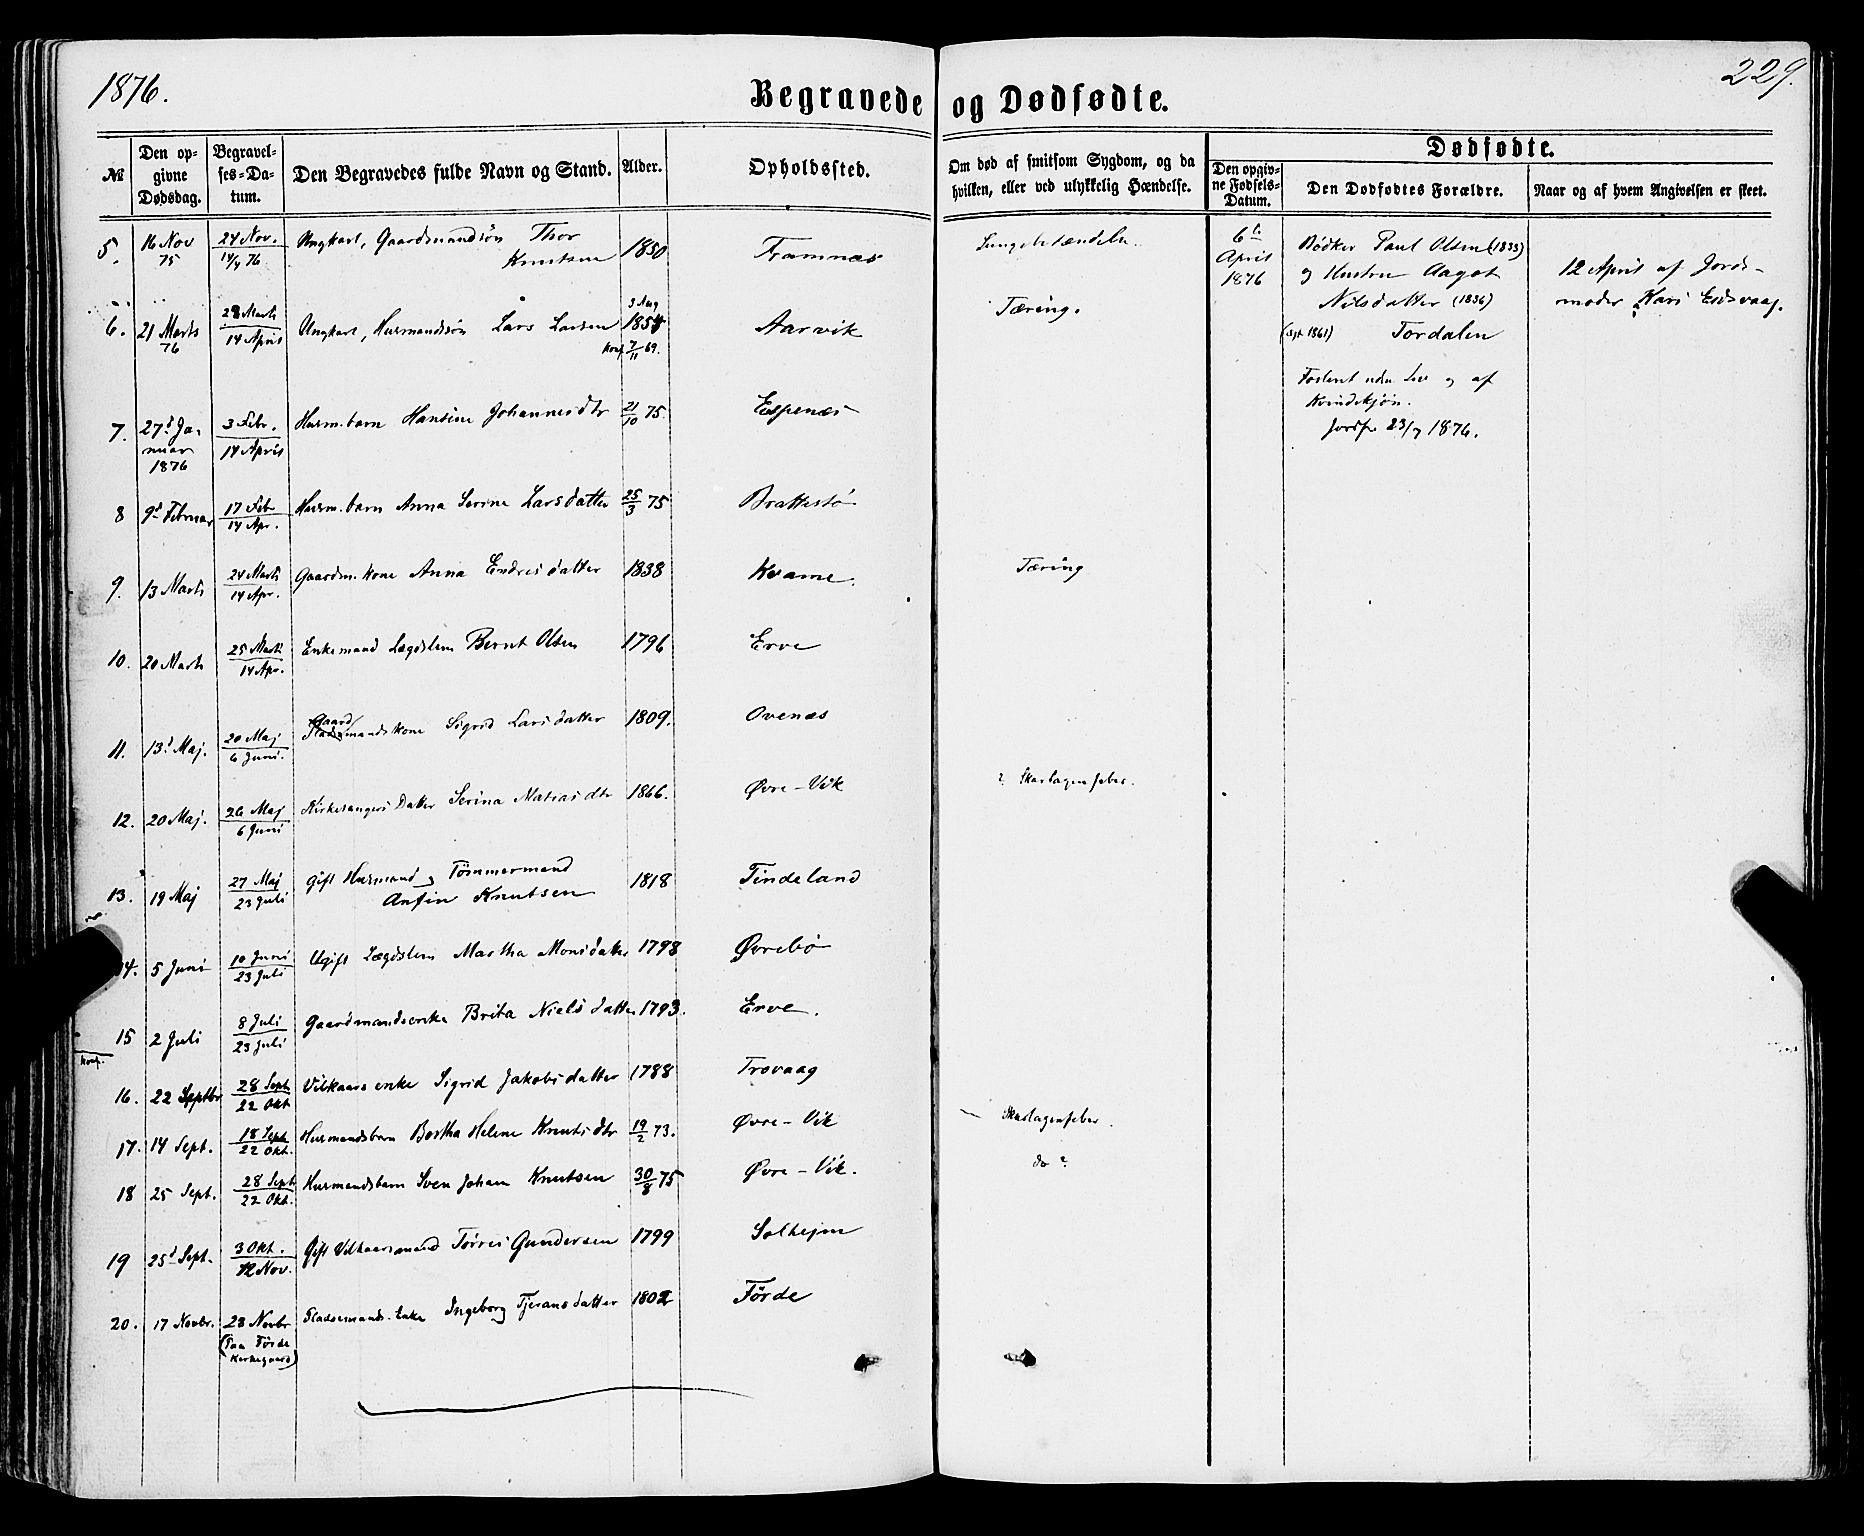 1876.
Begravede og Dødfødte.
229.
№
Den op-
givne
Dødsdag.
Begravel-
ses-Da-
tum.
Den Begravedes fulde Navn og Stand.
Alder.
Opholdssted.
Om død af smitsom Sygdom, og da
hvilken, eller ved ulykkelig Hændelse.
Dødfødte.
Den opgiv-
ne Fødsels-
Datum.
Den Dødfødtes Forældre.
Naar og af hvem Angivelsen er skeet.
5. 16 Nov 75 24 Nov. 14/4 76 Ungkarl, Gaardmandsøn Thor
Knutsen 1850 Framnæs Lungebetændelse.
6. 21 Marts 76 28 Marts 14 April Ungkarl, Husmandsøn Lars Larsen 3 Aug 1854 Konf. 7/11 69. Aarvik Tæring.
7. 27d Ja-
nuar
1876 3 Febr. 14 April Husm.barn Hansine Johannesdtr 21/10 75. Espenæs
8 9d Februar 17 Feb 14 Apr. Husm.barn Anna Serine Larsdatter 25/3 75 Brattestø
9. 13 Marts 24 Marts 14 Apr. Gaardm. Kone Anna Endresdatter 1838 Kvame. Tæring
10. 20 Marts 25 Marts 14 Apr. Enkemand Lægdslem Bernt Olsen 1796 Erve
11. 13d Maj. 20 Maj 6 Juni. Gaard
Pladsmandskone Sigrid Larsdatter 1809. Ovenæs
12. 20 Maj. 26 Maj 6 Juni Kirkesangers Datter Serina Matiasdtr 1866. Øvre-Vik ? Skarlagensfeber.
13. 19 Maj 27 Maj 23 Juli Gift Husmand og Tømmermand
Anfin Knutsen 1818 Tindeland
14. 5 Juni 10 Juni 23 Juli Ugift Lægdslem Martha Monsdatter 1798 Øvrebø
15 2 Juli 8 Juli 23 Juli Gaardmandsenke Brita Nielsdatter 1793. Erve.
Konf.
16. 22 Septbr 28 Sept. 22 Okt Vilkaarsenke Sigrid Jakobsdatter 1788 Trovaag
17. 14 Sept. 18 Sept 22 Okt. Husmandsbarn Bertha Helene Knutsdtr 19/2 73. Øvre-Vik Skarlagensfeber.
18 25 Sept. 28 Sept 22 Okt. Husmandsbarn Sven Johan Knutsen 30/8 75 Øvre-Vik. do ?
19 25d Sept. 3 Okt. 12 Nov. Gift Vilkaarsmand Tørres Gundersen 1799 Solhejm
20. 17 Novbr. 23 Novbr Pladsemands-Enke Ingeborg Tjeransdatter 1802 Førde
(Paa Førde
Kirkegaard)
6te
April
1876
Bødker Paul Olsen (1833)
og Hustru Aagot
Nilsdatter (1836)
(gift 1861) Tordalen
Fosteret uden Liv og af
Kvindekjøn.
Jordf. 23/7 1876.
12 April af Jord-
moder Kari Eidsvaag.